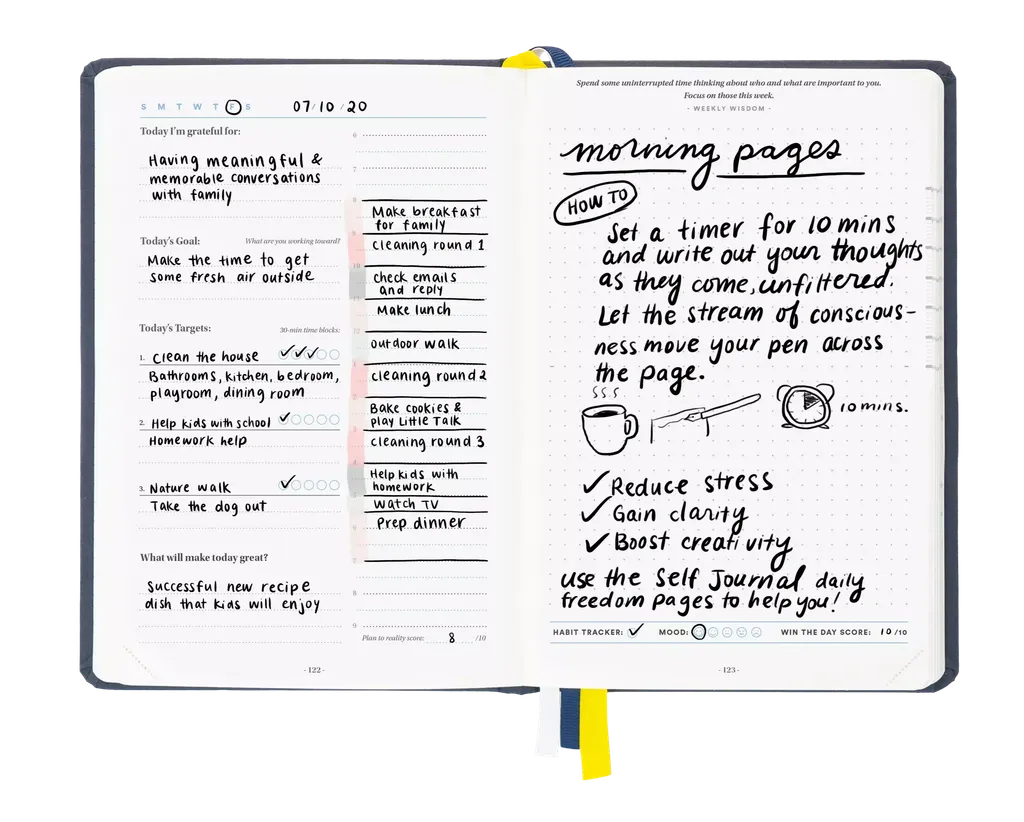 S M T W T F S 07/10/20
Today I'm grateful for:
Having meaningful &
memorable conversations
with family
Today's Goal: What are you working toward?
Make the time to get
some fresh air outside
Today's Targets: 30-min time blocks:
1. Clean the house
Bathrooms, kitchen, bedroom,
playroom, dining room
2. Help kids with school
Homework help
3. Nature walk
Take the dog out
What will make today great?
Successful new recipe
dish that kids will enjoy
6
7
8
Make breakfast
for family
9
cleaning round 1
10
check emails
and reply
11
Make lunch
12
outdoor walk
1
cleaning round 2
2
Bake cookies &
play Little Talk
3
cleaning round 3
4
Help kids with
homework
5
Watch TV
6
Prep dinner
7
8
9
Plan to reality score: 8 /10
- 122 -
Spend some uninterrupted time thinking about who and what are important to you.
Focus on those this week.
- WEEKLY WISDOM -
morning pages
HOW TO
Set a timer for 10 mins
and write out your thoughts
as they come, unfiltered.
Let the stream of conscious-
ness move your pen across
the page.
10 mins.
Reduce stress
Gain clarity
Boost creativity
use the Self Journal daily
freedom pages to help you!
HABIT TRACKER: MOOD: WIN THE DAY SCORE: 10 /10
- 123 -